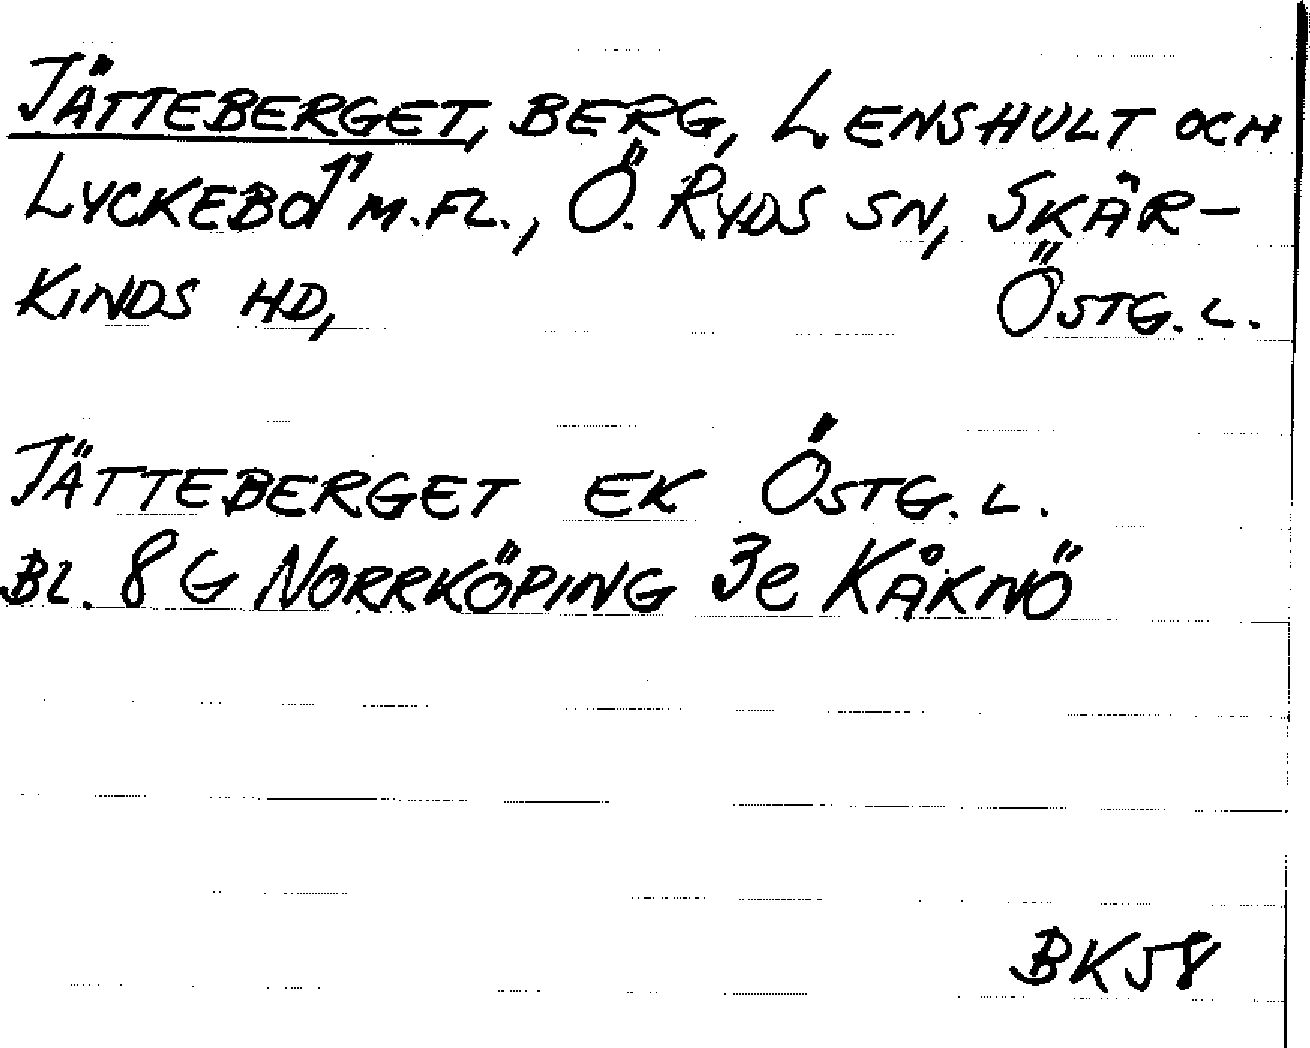 JÄTTEBERGET, BERG, LENSHULT OCH
LYCKEBO M.FL., Ö. RYDS SN, SKÄR-
KINDS HD, ÖSTG. L.
JÄTTEBERGET EK ÖSTG. L.
BL. 8 G NORRKÖPING 3e KÅKNÖ
BK58